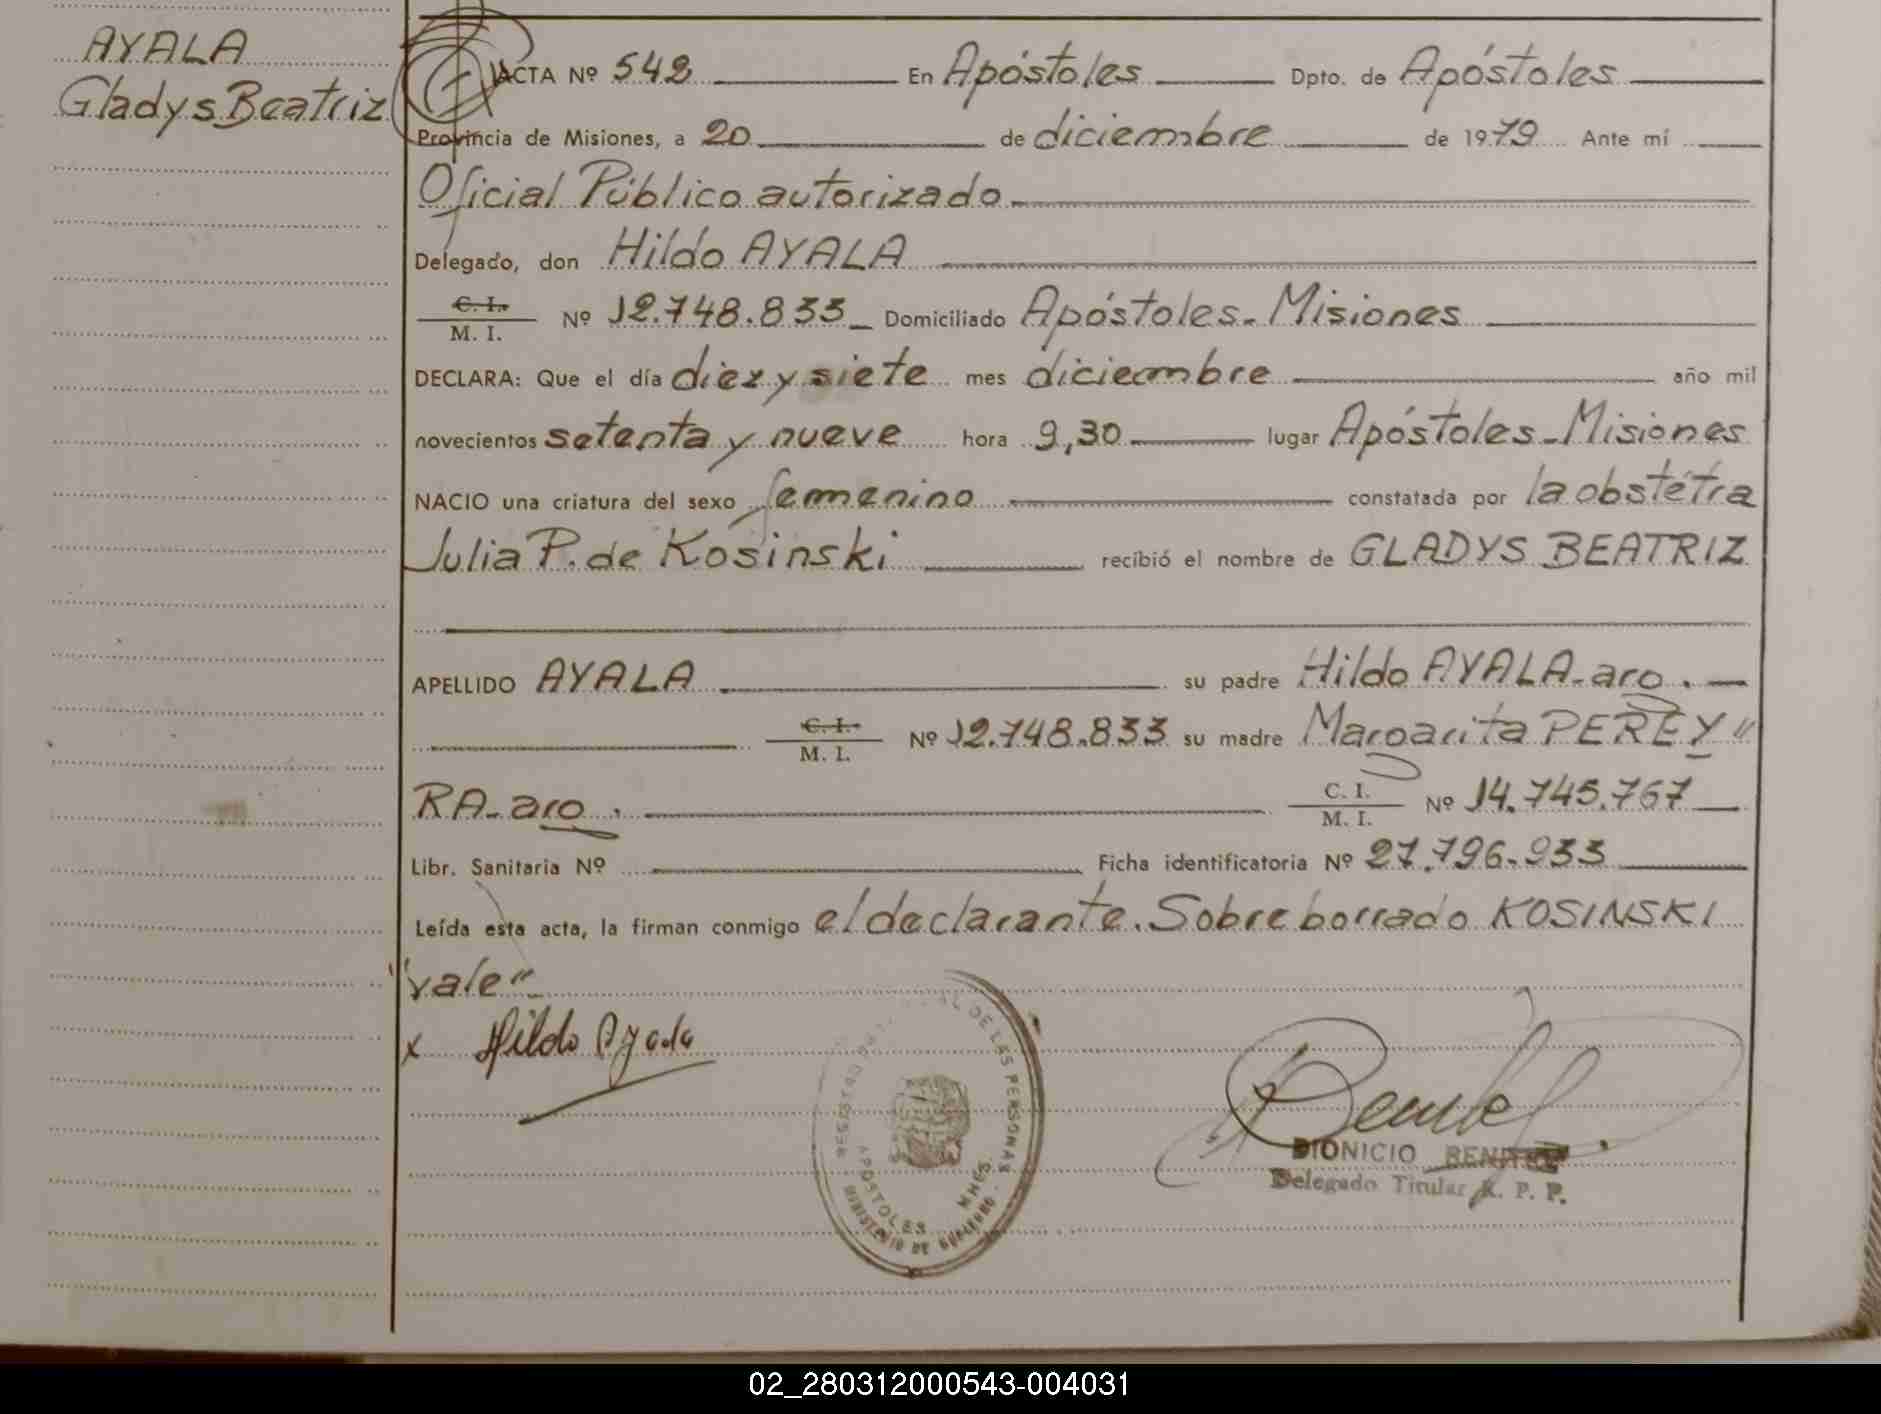 AYALA
Gladys Beatriz
ACTA Nº 542 En Apóstoles Dpto. de Apóstoles
Provincia de Misiones, a 20 de diciembre de 1979 Ante mí
Oficial Público autorizado
Delegado, don Hildo AYALA
C. I.
M. I. Nº 12.748.833 Domiciliado Apóstoles-Misiones
DECLARA: Que el día diez y siete mes diciembre año mil
novecientos setenta y nueve hora 9,30 lugar Apóstoles-Misiones
NACIO una criatura del sexo femenino constatada por la obstétra
Julia P. de Kosinski recibió el nombre de GLADYS BEATRIZ
APELLIDO AYALA su padre Hildo AYALA-aro.
C. I.
M. I. Nº 12.748.833 su madre Margarita PEREY"
RA-aro. C. I.
M. I. Nº 14.745.767
Libr. Sanitaria Nº Ficha identificatoria Nº 27.796.933
Leída esta acta, la firman conmigo el declarante. Sobre borrado KOSINSKI
"vale"
x Hildo Ayala
DE LAS PERSONAS
REGISTRO
APOSTOLES MNES.
MINISTERIO DE GOBIERNO
DIONICIO
Delegado Titular R. P. P.
02_280312000543-004031